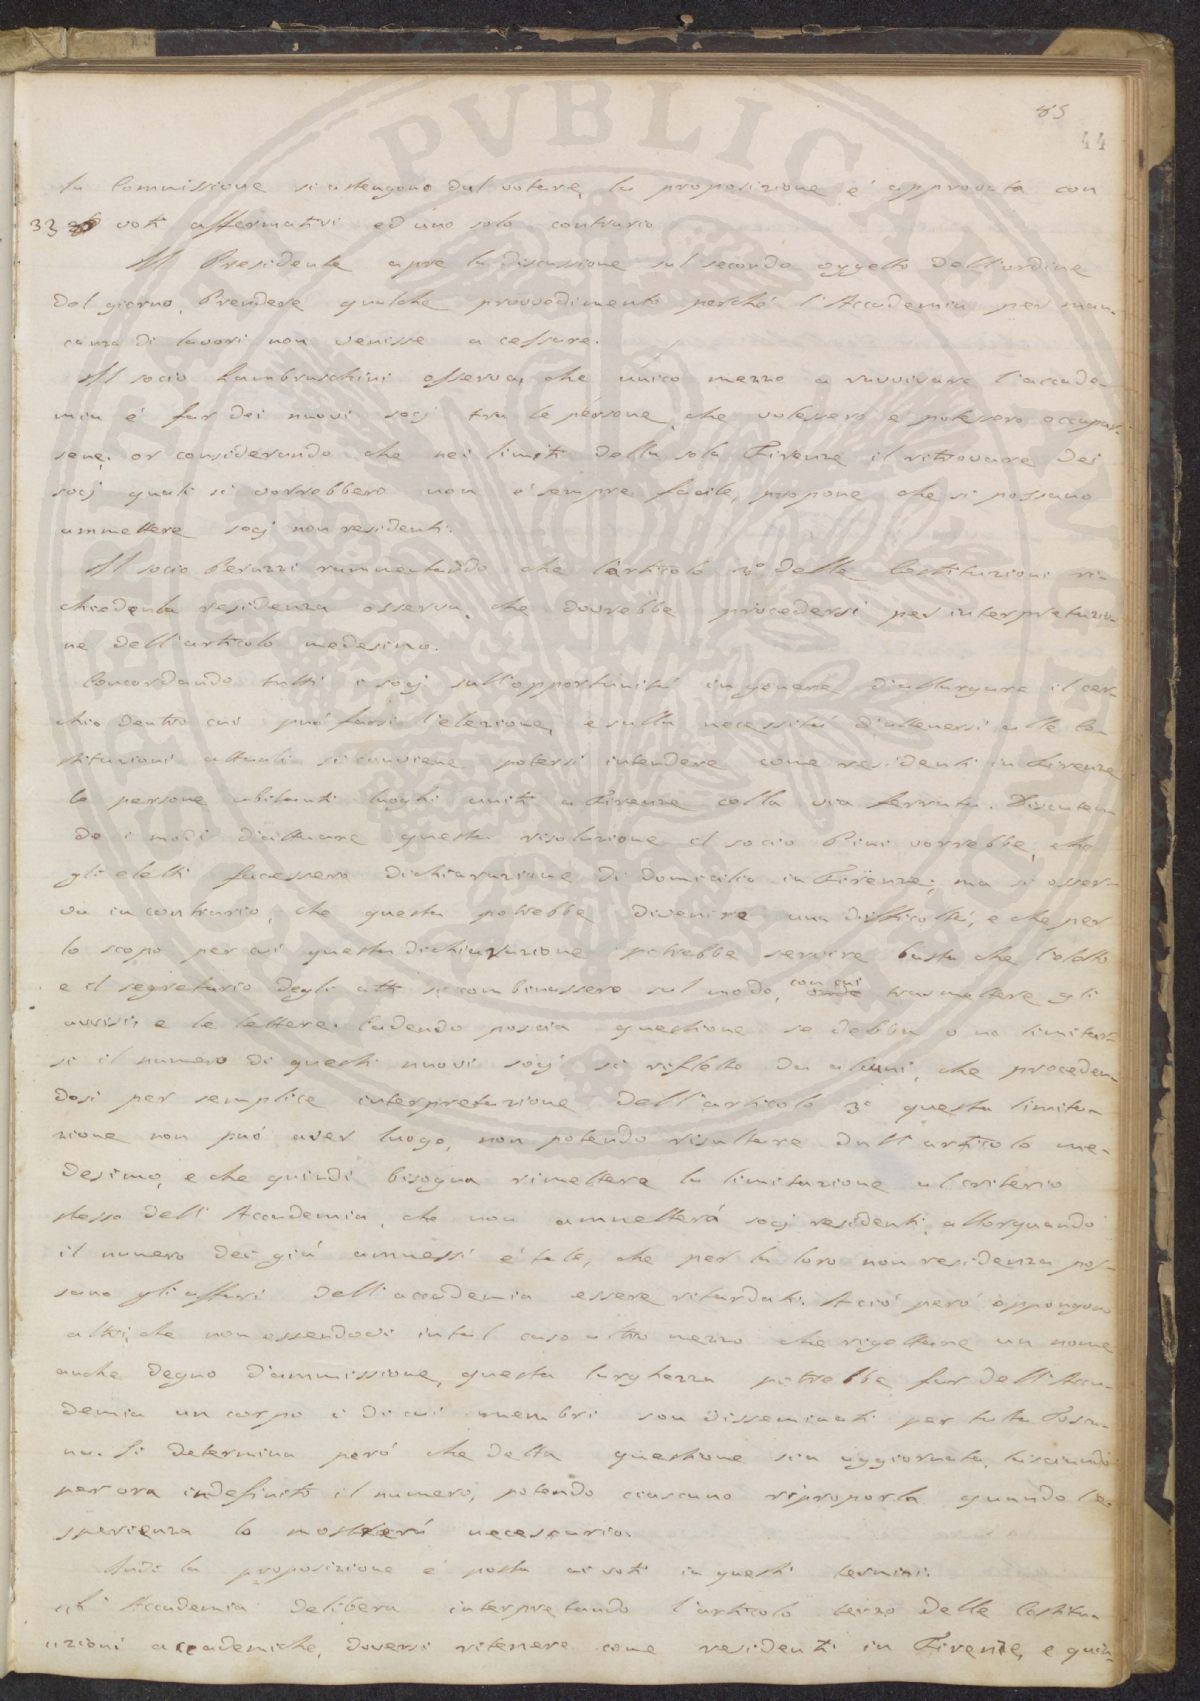 85
44
la Commissione si astengono dal votare, la proposizione è approvata con
33 voti affermativi ed uno solo contrario
Il Presidente apre la discussione sul secondo oggetto dell'ordine
del giorno, Prendere qualche provvedimento perché l'Accademia per man-
canza di lavori non venisse a cessare.
Il socio Lambruschini osserva, che unico mezzo a ravvivare l'accade-
mia é far dei nuovi socj tra le persone, che volessero e potessero occupar-
sene; or considerando che nei limiti della sola Firenze il ritrovare dei
socj quali si vorrebbero non é sempre facile, propone che si possano
ammettere socj non residenti.
Il socio Peruzzi rammentando che l'articolo 3° delle Costituzioni ri-
chiede la residenza osserva, che dovrebbe procedersi per interpretazio-
ne dell'articolo medesimo.
Concordando tutti i socj sull'opportunitá in genere d'allargare il cer-
chio dentro cui puó farsi l'elezione, e sulla necessitá d'attenersi alle Co-
stituzioni attuali si conviene potersi intendere come residenti in Firenze
le persone abitanti luoghi uniti a Firenze colla via ferrata. Discuten-
do i modi d'attuare questa risoluzione il socio Pini vorrebbe, che
gli eletti facessero dichiarazione di domicilio in Firenze; ma si osser-
va in contrario, che questa potrebbe divenire una difficoltá, e che per
lo scopo per cui questa dichiarazione potrebbe servire basta che l'eletto
e il segretario degli atti si combinassero sul modo, con cui trasmettere gli
avvisi e le lettere. Cadendo poscia questione se debba o no limitar-
si il numero di questi nuovi socj si riflette da alcuni, che proceden-
dosi per semplice interpretazione dell'articolo 3° questa limita-
zione non puó aver luogo, non potendo risultare dall'articolo me-
desimo, e che quindi bisogna rimettere la limitazione al criterio
stesso dell'Accademia, che non ammetterá socj residenti, allorquando
il numero dei giá ammessi é tale, che per la loro non residenza pos-
sano gli affari dell'accademia essere ritardati. A ció peró oppongono
altri, che non essendovi in tal caso altro mezzo che rigettare un nome
anche degno d'ammissione, questa larghezza potrebbe far dell'Acca-
demia un corpo i di cui membri son disseminati per tutta Tosca-
na. Si determina peró che detta questione sia aggiornata, lasciando
per ora indefinito il numero, potendo ciascuno riproporla quando l'e-
sperienza lo mostrerá necessario.
Indi la proposizione é posta ai voti in questi termini:
"L'Accademia delibera interpretando l'articolo terzo delle Costitu-
zioni accademiche, doversi ritenere come residenti in Firenze, e quin-